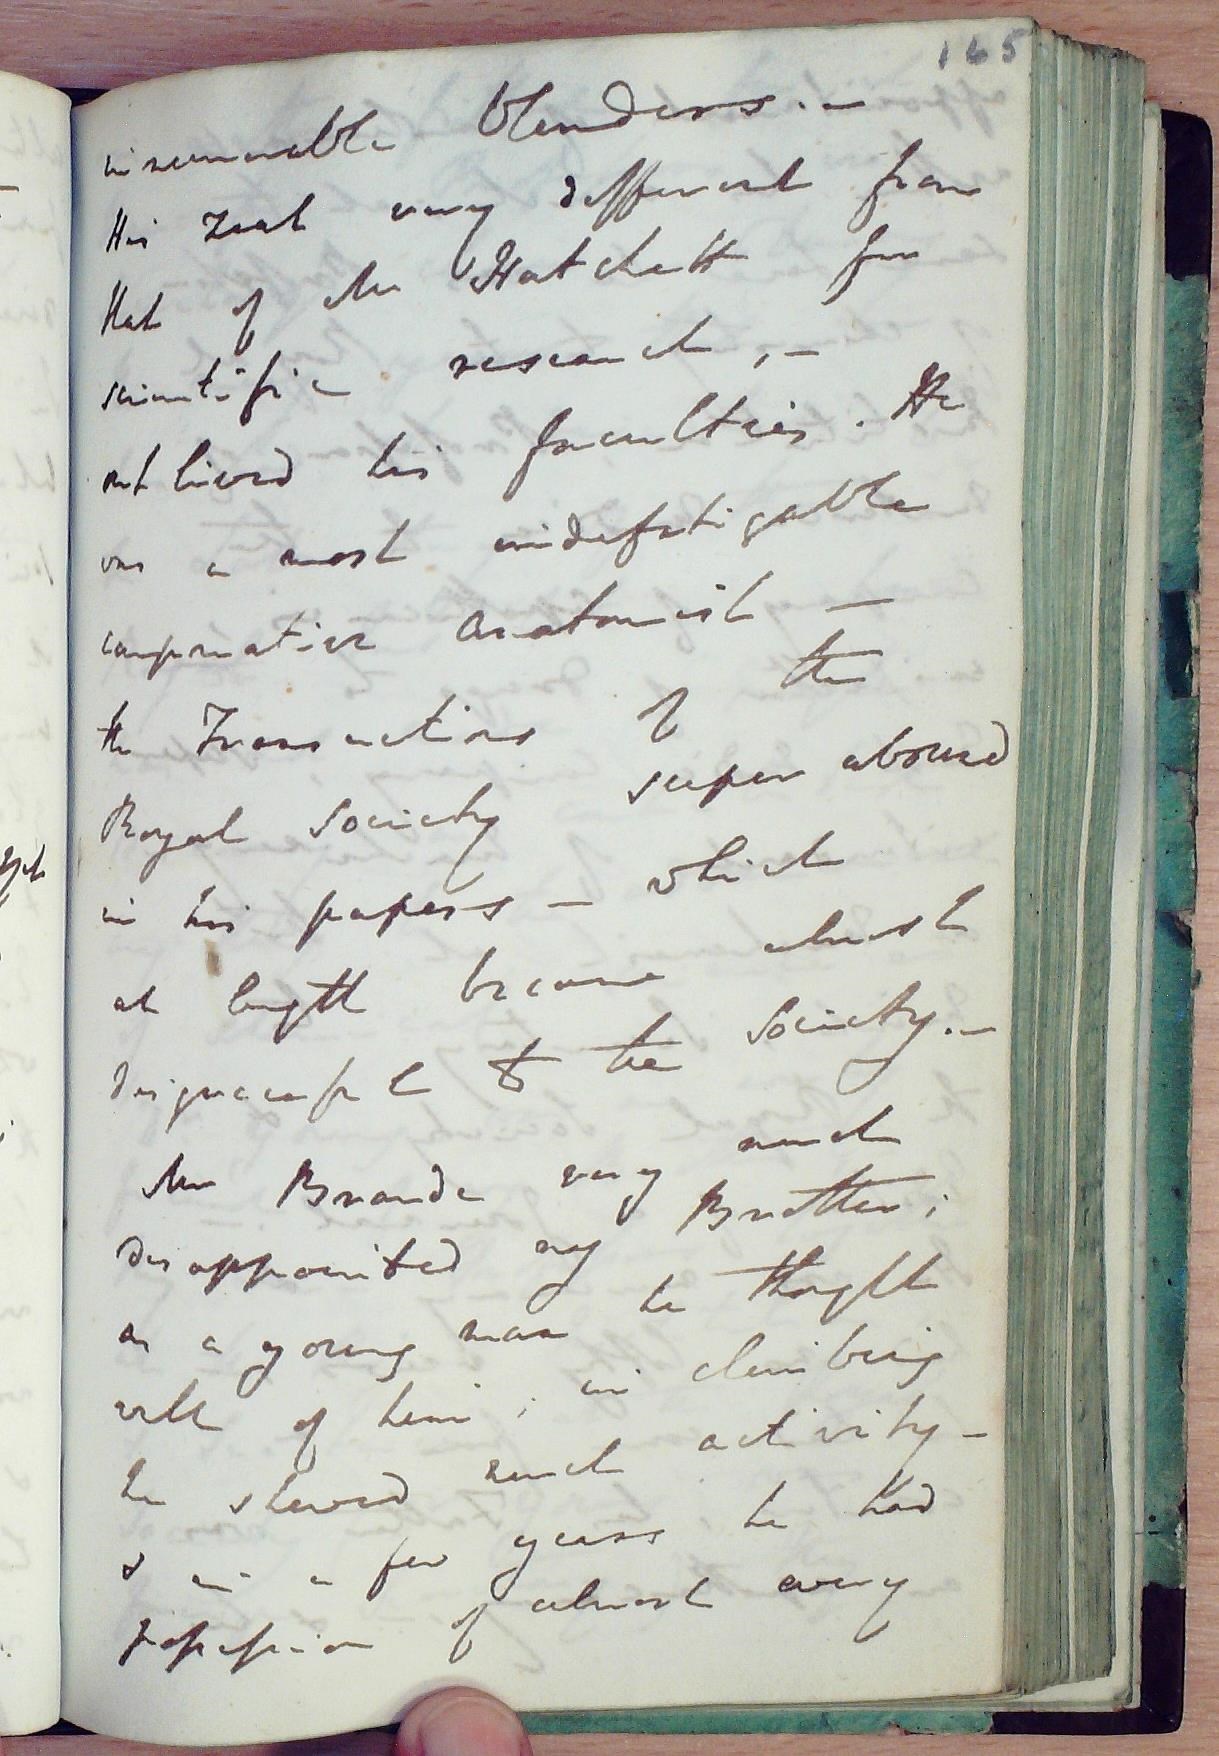 165
innumerable blunders. —
His zeal very different from
that of Mr Hatchett for
scientific research, —
outlived his faculties. He
was a most indefatigable
comparative anatomist —
the Transactions of the
Royal Society super abound
in his papers — which
at length became almost
disgraceful to the Society. —
Mr Brande very much
disappointed my Brother;
as a young man he thought
well of him; in climbing
he shewed much activity —
& in a few years he had
possession of almost every